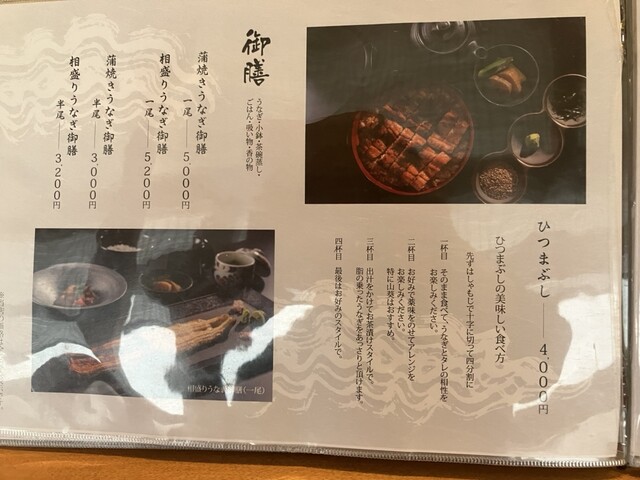 ひつまぶし 4,000円
ひつまぶしの美味しい食べ方
先ずはしゃもじで十字に切って四分割に
一杯目 そのまま食べて、うなぎとタレの相性を
お楽しみください。
二杯目 お好みで薬味をのせてアレンジを
お楽しみください。
特に山葵はおすすめ。
三杯目 出汁をかけてお茶漬けスタイルで。
脂の乗ったうなぎをあっさりと頂けます。
四杯目 最後はお好みのスタイルで。
御膳
うなぎ・小鉢・茶碗蒸し・
ごはん・吸い物・香の物
蒲焼きうなぎ御膳
一尾 5,000円
相盛りうなぎ御膳
一尾 5,200円
蒲焼きうなぎ御膳
半尾 3,000円
相盛りうなぎ御膳
半尾 3,200円
相盛りうなぎ御膳(一尾)